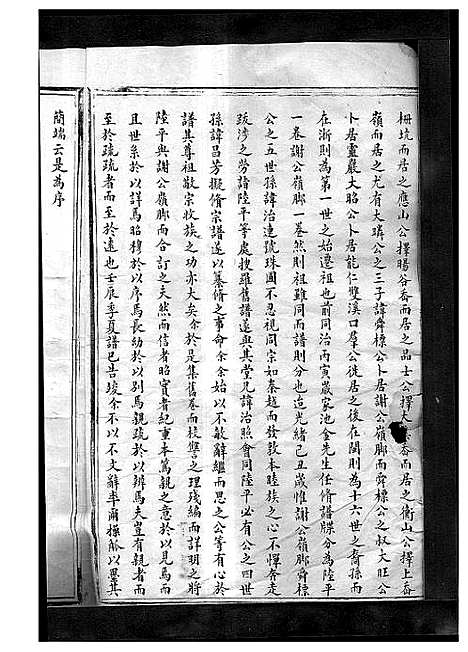 柵坑而居之應山公擇勝谷畬而居之品士公擇大 畬而居之衢山公擇上畬
嶺而居之尤有大璘公之三子諱舜標公卜居謝公嶺腳而舜標公之叔大旺公
卜居靈巖大昭公卜居能仁雙溪口羣公徙居之後在閩則為十六世之裔孫而
在浙則為第一世之始遷祖也前同治丙寅歲家池金先生任脩譜牒分為陸平
一卷謝公嶺腳一卷然則祖雖同而譜則分也迨光緒己丑歲惟謝公嶺腳舜標
公之五世孫諱治連號珠圃不忍視同宗如秦越而發敦本睦族之心不憚奔走
跋涉之勞詣陸平等處搜羅舊譜遂與其堂兄諱治照會同陸平必有公之四世
孫諱昌芳擬脩宗譜遂以纂脩之事命余余始以不敏辭繼而思之公等有心於
譜其尊祖敬宗收族之功亦大矣余於是集舊卷而校讐之理殘編而詳明之將
陸平與謝公嶺腳而合訂之夫然而信者昭實者紀重本篤親之意於以見焉而
且世系於以詳焉昭穆於以序焉長幼於以別焉親疏於以辨焉夫豈有親者而
至於疏疏者而至於遠也壬辰季夏譜已告竣余不以不文辭率爾操觚以畀其
簡端云是為序